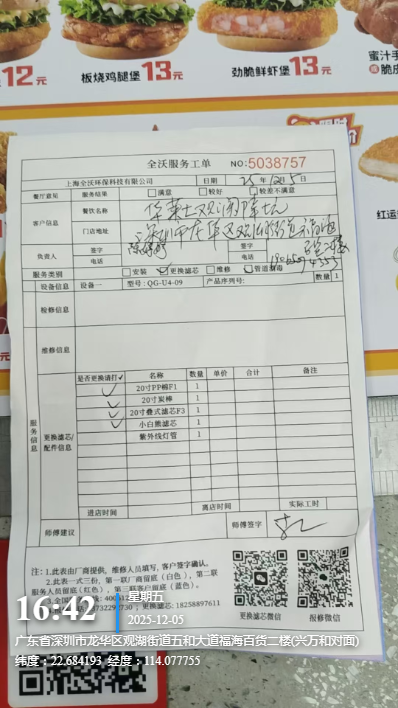 12元
板烧鸡腿堡13元
劲脆鲜虾堡13元
蜜汁手
或脆皮
红运
全沃服务工单 NO:5038757
上海全沃环保科技有限公司 日期 25年12月5日
餐厅意见 服务结果 满意 较好 较差不满意
客户信息 餐饮名称 华莱士观湖
门店地址 深圳市龙华区观湖街道
负责人 签字 签字
电话 电话
服务类别 安装 更换滤芯 维修 管道消毒
设备信息 设备一 型号:QG-U4-09 产品序列号: 数量 1
检修信息
维修信息
服务信息
更换滤芯/配件信息
是否更换请打✓ 名称 数量 单价 合计 备注
✓ 20寸PP棉F1 1
✓ 20寸炭棒 1
✓ 20寸叠式滤芯F3 1
✓ 小白熊滤芯 1
紫外线灯管 1
进店时间 离店时间 实际工时
师傅建议 师傅签字
注:1.此表由厂商提供,维修人员填写,客户签字确认。
2.此表一式三份,第一联厂商留底(白色),第二联
服务人员留底(红色),第三联客户留底(蓝色)。
更换滤芯:18258897611
更换滤芯微信 报修微信
16:42
星期五
2025-12-05
广东省深圳市龙华区观湖街道五和大道福海百货二楼(兴万和对面)
纬度:22.684193 经度:114.077755